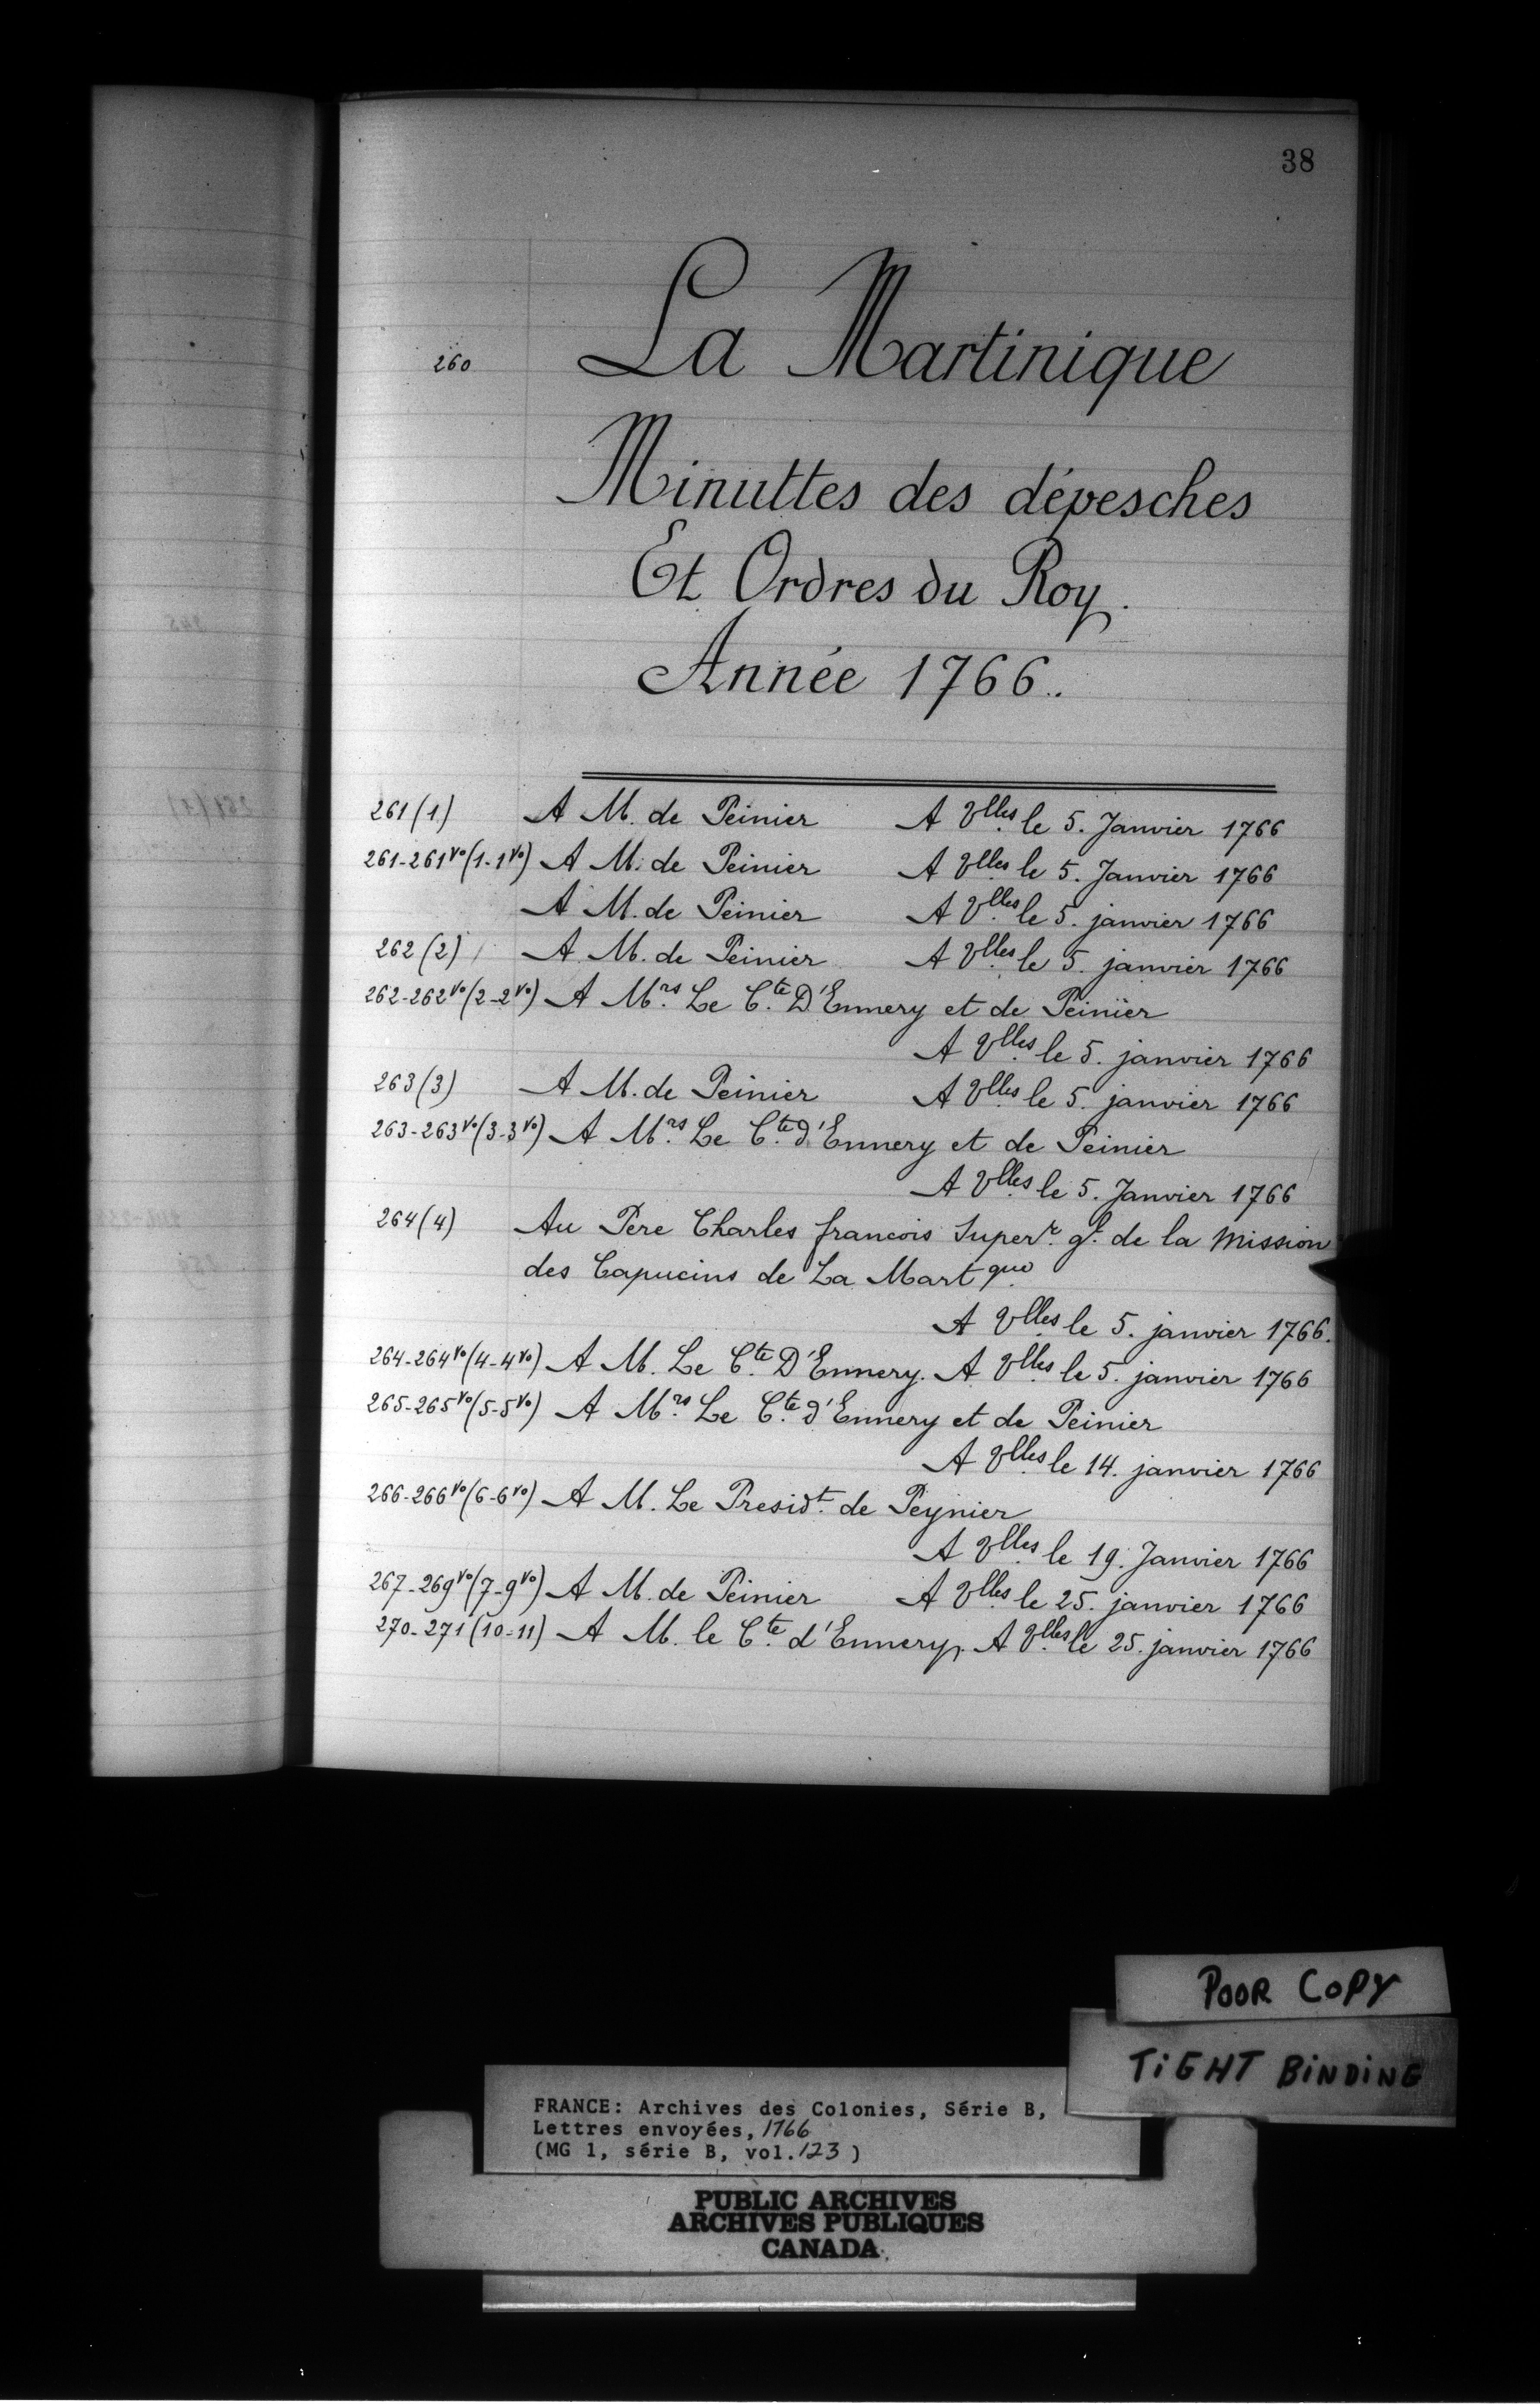 38
260 La Martinique
Minuttes des dépesches
Et Ordres du Roy.
Année 1766.
261 (1) A M. de Peinier A Vlles le 5. Janvier 1766
261-261vo (1-1vo) A M. de Peinier A Vlles le 5. Janvier 1766
A M. de Peinier A Vlles le 5. janvier 1766
262 (2) A M. de Peinier A Vlles le 5. janvier 1766
262-262vo (2-2vo) A Mrs. Le Cte. D'Ennery et de Peinier
A Vlles le 5. janvier 1766
263 (3) A M. de Peinier A Vlles le 5. janvier 1766
263-263vo (3-3vo) A Mrs. Le Cte. d'Ennery et de Peinier
A Vlles le 5. Janvier 1766
264 (4) Au Pere Charles francois Superr. gl. de la Mission
des Capucins de La Martque
A Vlles le 5. janvier 1766.
264-264vo (4-4vo) A M. Le Cte. D'Ennery. A Vlles le 5. janvier 1766
265-265vo (5-5vo) A Mrs. Le Cte. d'Ennery et de Peinier
A Vlles le 14. janvier 1766
266-266vo (6-6vo) A M. Le Presidt. de Peynier
A Vlles le 19. Janvier 1766
267-269vo (7-9vo) A M. de Peinier A Vlles le 25. janvier 1766
270-271 (10-11) A M. le Cte. d'Ennery. A Vlles le 25. janvier 1766
POOR COPY
TIGHT BINDING
FRANCE: Archives des Colonies, Série B,
Lettres envoyées, 1766
(MG 1, série B, vol. 123 )
PUBLIC ARCHIVES
ARCHIVES PUBLIQUES
CANADA